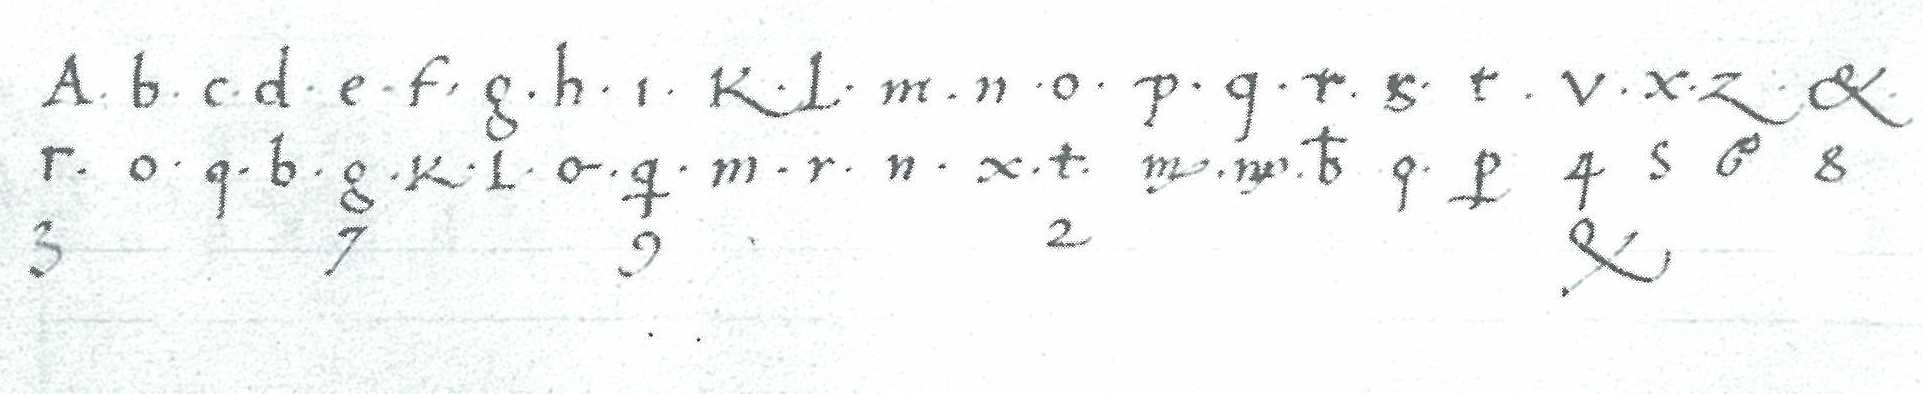 A. b. c. d. e. f. g. h. ı. K. L. m. n. o. p. q. r. s. t. v. x. z. &.
r. o. q. b. g. K. L. o. ꝗ. m. r. n. x. t. m. b̵ q. ꝑ 4 5 6 8
3 7 9 2 &